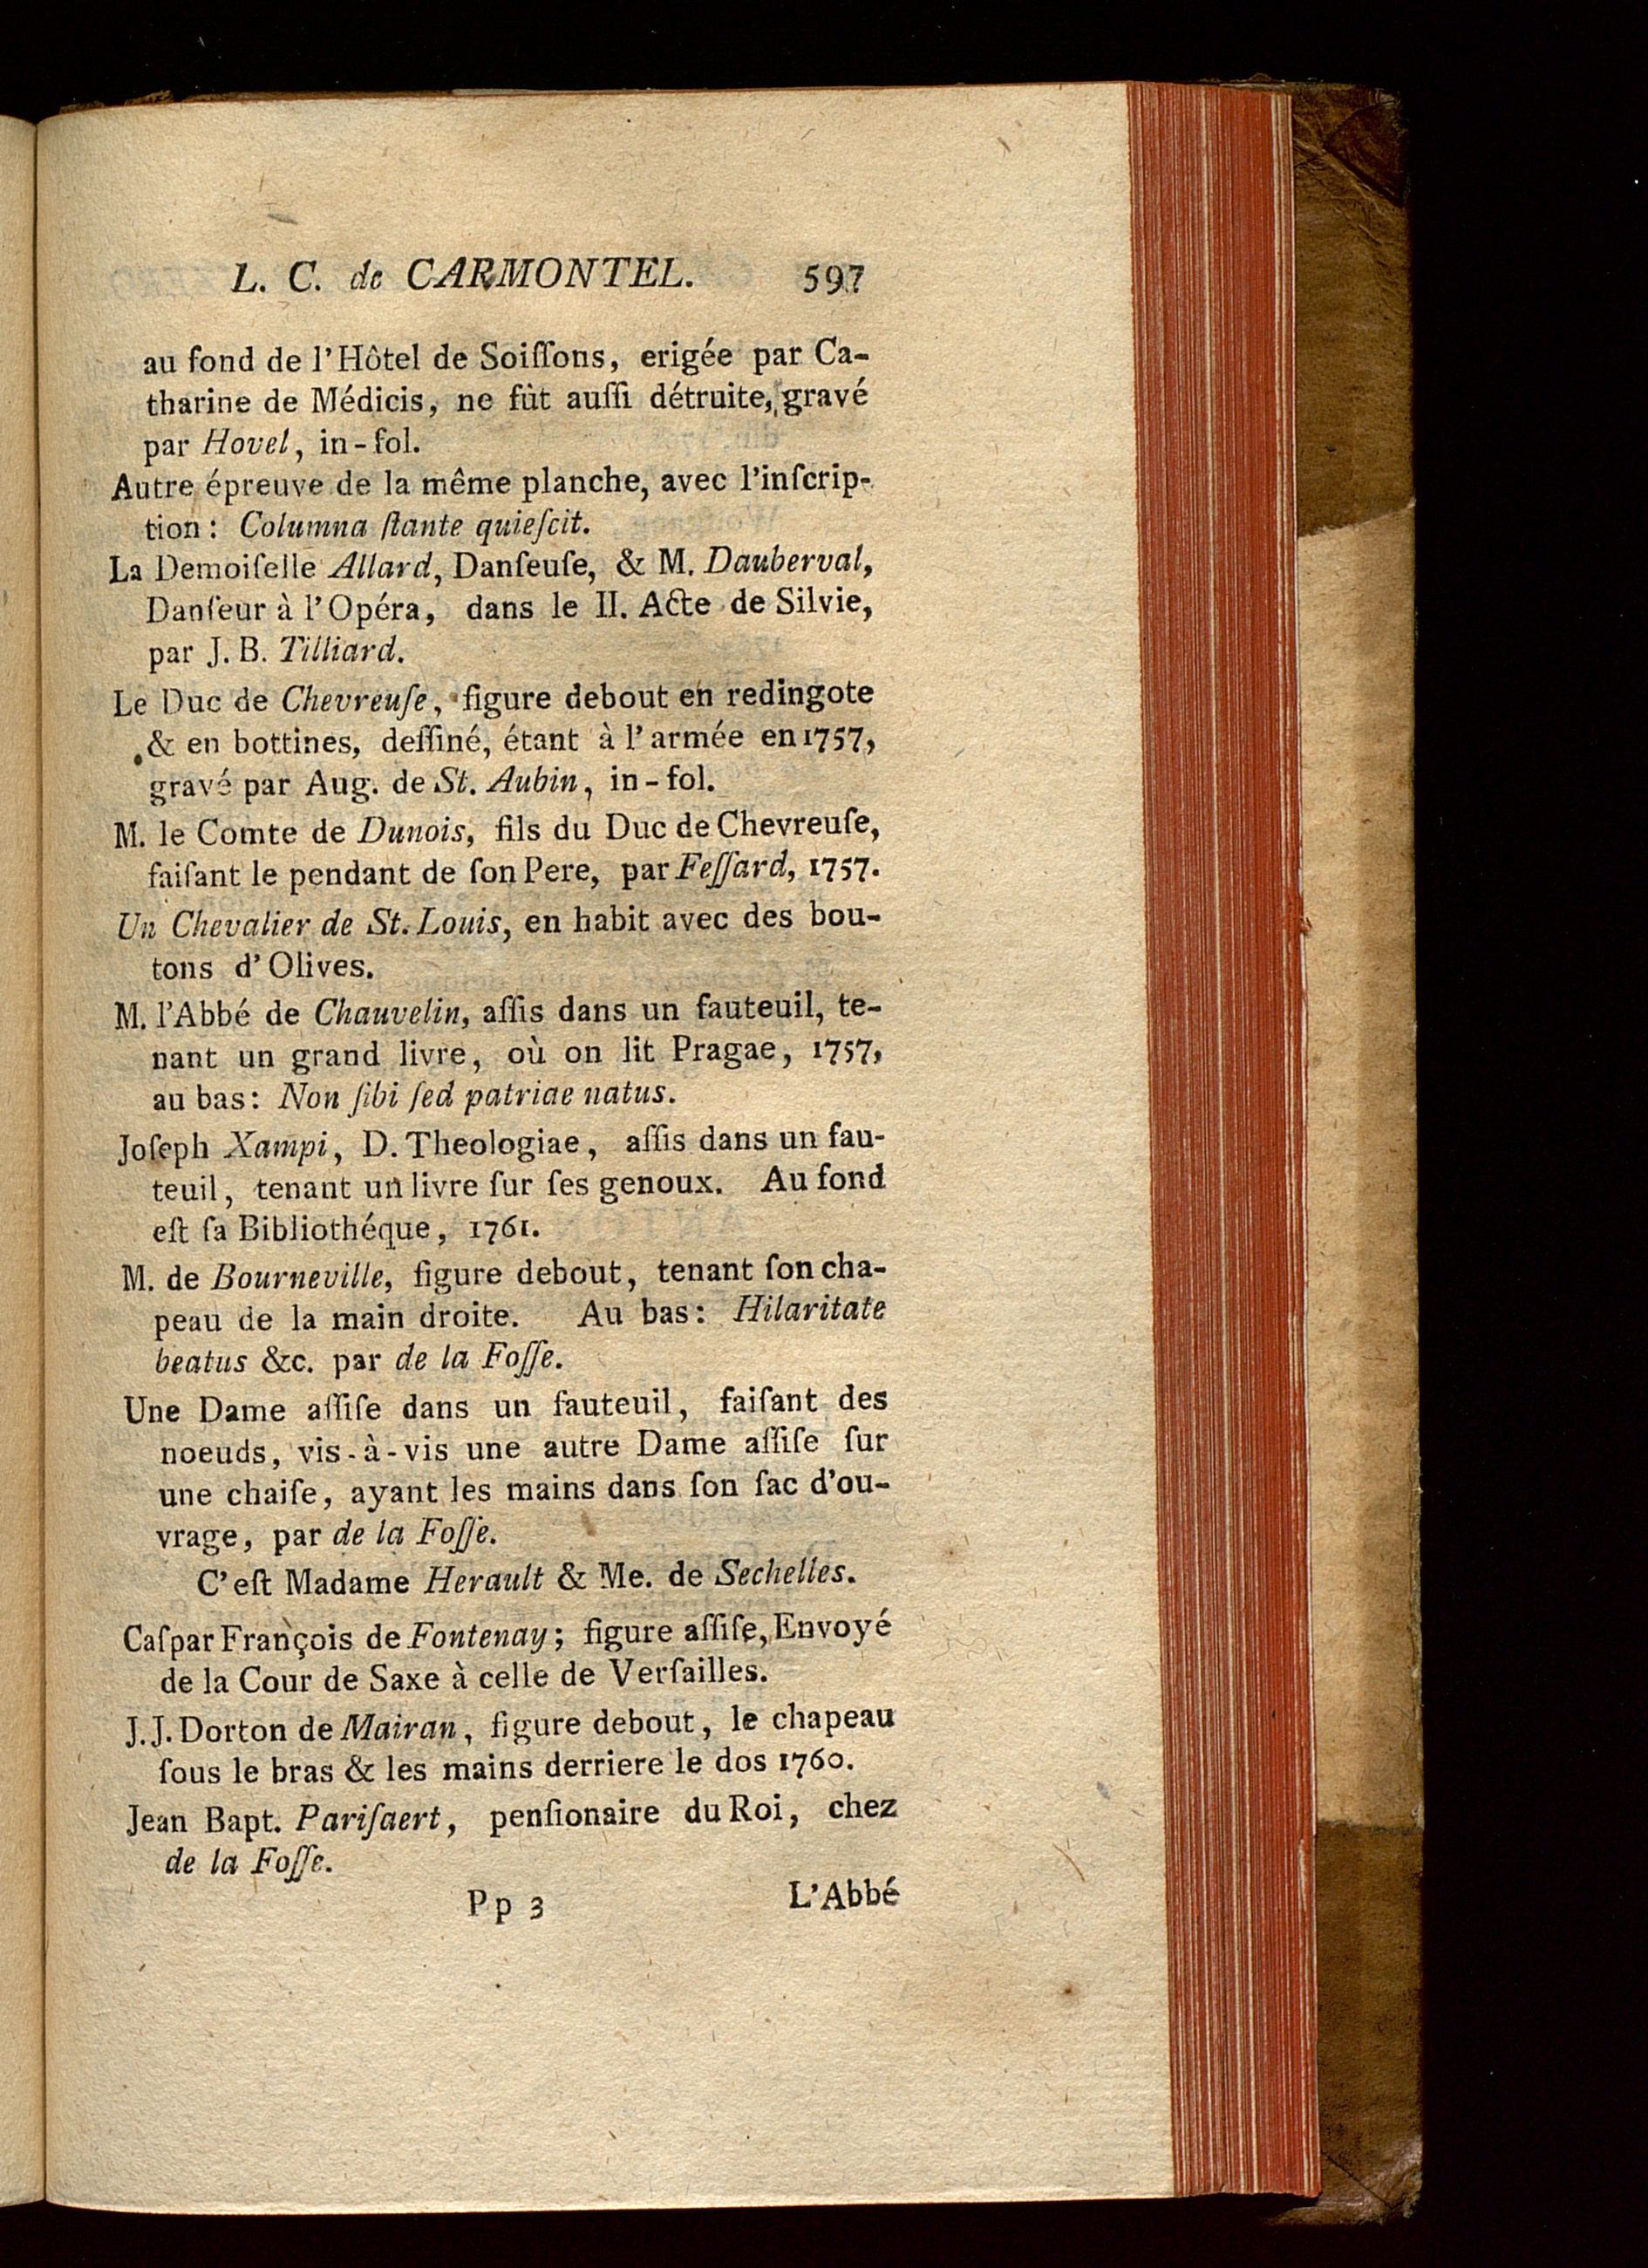 L. C. de CARMONTEL. 597
au fond de l'Hôtel de Soiſſons, erigée par Ca-
tharine de Médicis, ne fùt auſſi détruite, gravé
par Hovel, in-fol.
Autre épreuve de la même planche, avec l'inſcrip-
tion: Columna ſtante quieſcit.
La Demoiſelle Allard, Danſeuſe, & M. Dauberval,
Danſeur à l'Opéra, dans le II. Acte de Silvie,
par J. B. Tilliard.
Le Duc de Chevreuſe, figure debout en redingote
& en bottines, deſſiné, étant à l'armée en 1757,
gravé par Aug. de St. Aubin, in-fol.
M. le Comte de Dunois, fils du Duc de Chevreuſe,
faiſant le pendant de ſon Pere, par Feſſard, 1757.
Un Chevalier de St. Louis, en habit avec des bou-
tons d'Olives.
M. l'Abbé de Chauvelin, aſſis dans un fauteuil, te-
nant un grand livre, où on lit Pragae, 1757,
au bas: Non ſibi ſed patriae natus.
Joſeph Xampi, D. Theologiae, aſſis dans un fau-
teuil, tenant un livre ſur ſes genoux. Au fond
eſt ſa Bibliothéque, 1761.
M. de Bourneville, figure debout, tenant ſon cha-
peau de la main droite. Au bas: Hilaritate
beatus &c. par de la Foſſe.
Une Dame aſſiſe dans un fauteuil, faiſant des
noeuds, vis-à-vis une autre Dame aſſiſe ſur
une chaiſe, ayant les mains dans ſon ſac d'ou-
vrage, par de la Foſſe.
C'eſt Madame Herault & Me. de Sechelles.
Caſpar François de Fontenay; figure aſſiſe, Envoyé
de la Cour de Saxe à celle de Verſailles.
J. J. Dorton de Mairan, figure debout, le chapeau
ſous le bras & les mains derriere le dos 1760.
Jean Bapt. Pariſaert, penſionaire du Roi, chez
de la Foſſe.
Pp 3 L'Abbé